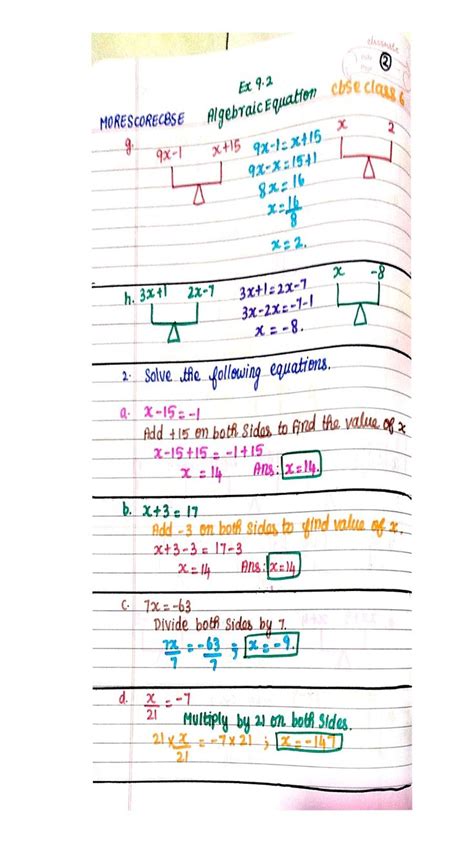 classmate
Date
Page
2
Ex 9.2
MORESCORECBSE Algebraic Equation cbse class 6
g. 9x-1 x+15 9x-1=x+15 x 2
9x-x=15+1
8x=16
x=16/8
x=2.
h. 3x+1 2x-7 3x+1=2x-7 x -8
3x-2x=-7-1
x=-8.
2. Solve the following equations.
a. x-15=-1
Add +15 on both Sides to find the value of x
x-15+15=-1+15
x=14 Ans: x=14.
b. x+3=17
Add -3 on both sides to find value of x.
x+3-3=17-3
x=14 Ans: x=14
c. 7x=-63
Divide both Sides by 7.
7x/7=-63/7; x=-9.
d. x/21=-7
Multiply by 21 on both Sides.
21×x/21=-7×21; x=-147